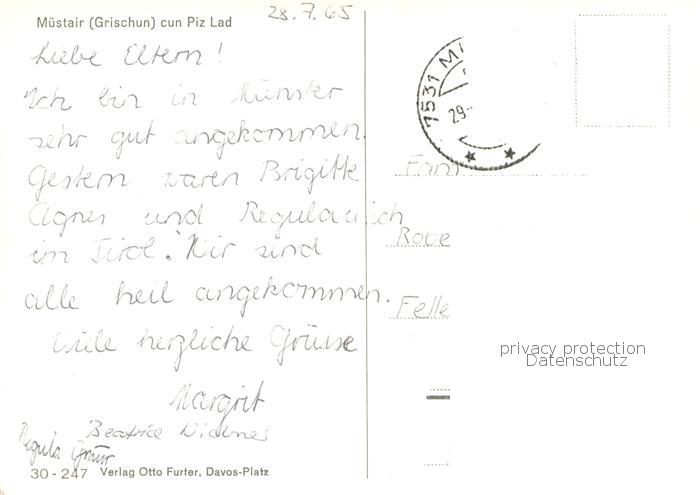 Müstair (Grischun) cun Piz Lad
28.7.65
Liebe Eltern!
Ich bin in Münster
sehr gut angekommen.
Gestern waren Brigitte
Agnes und Regula auch
im Tirol. Wir sind
alle heil angekommen.
Viele herzliche Grüsse
Margrit
Beatrice
Regula
30-247 Verlag Otto Furter, Davos-Platz
7531 M
29.
Fam
Robe
Felle
privacy protection
Datenschutz